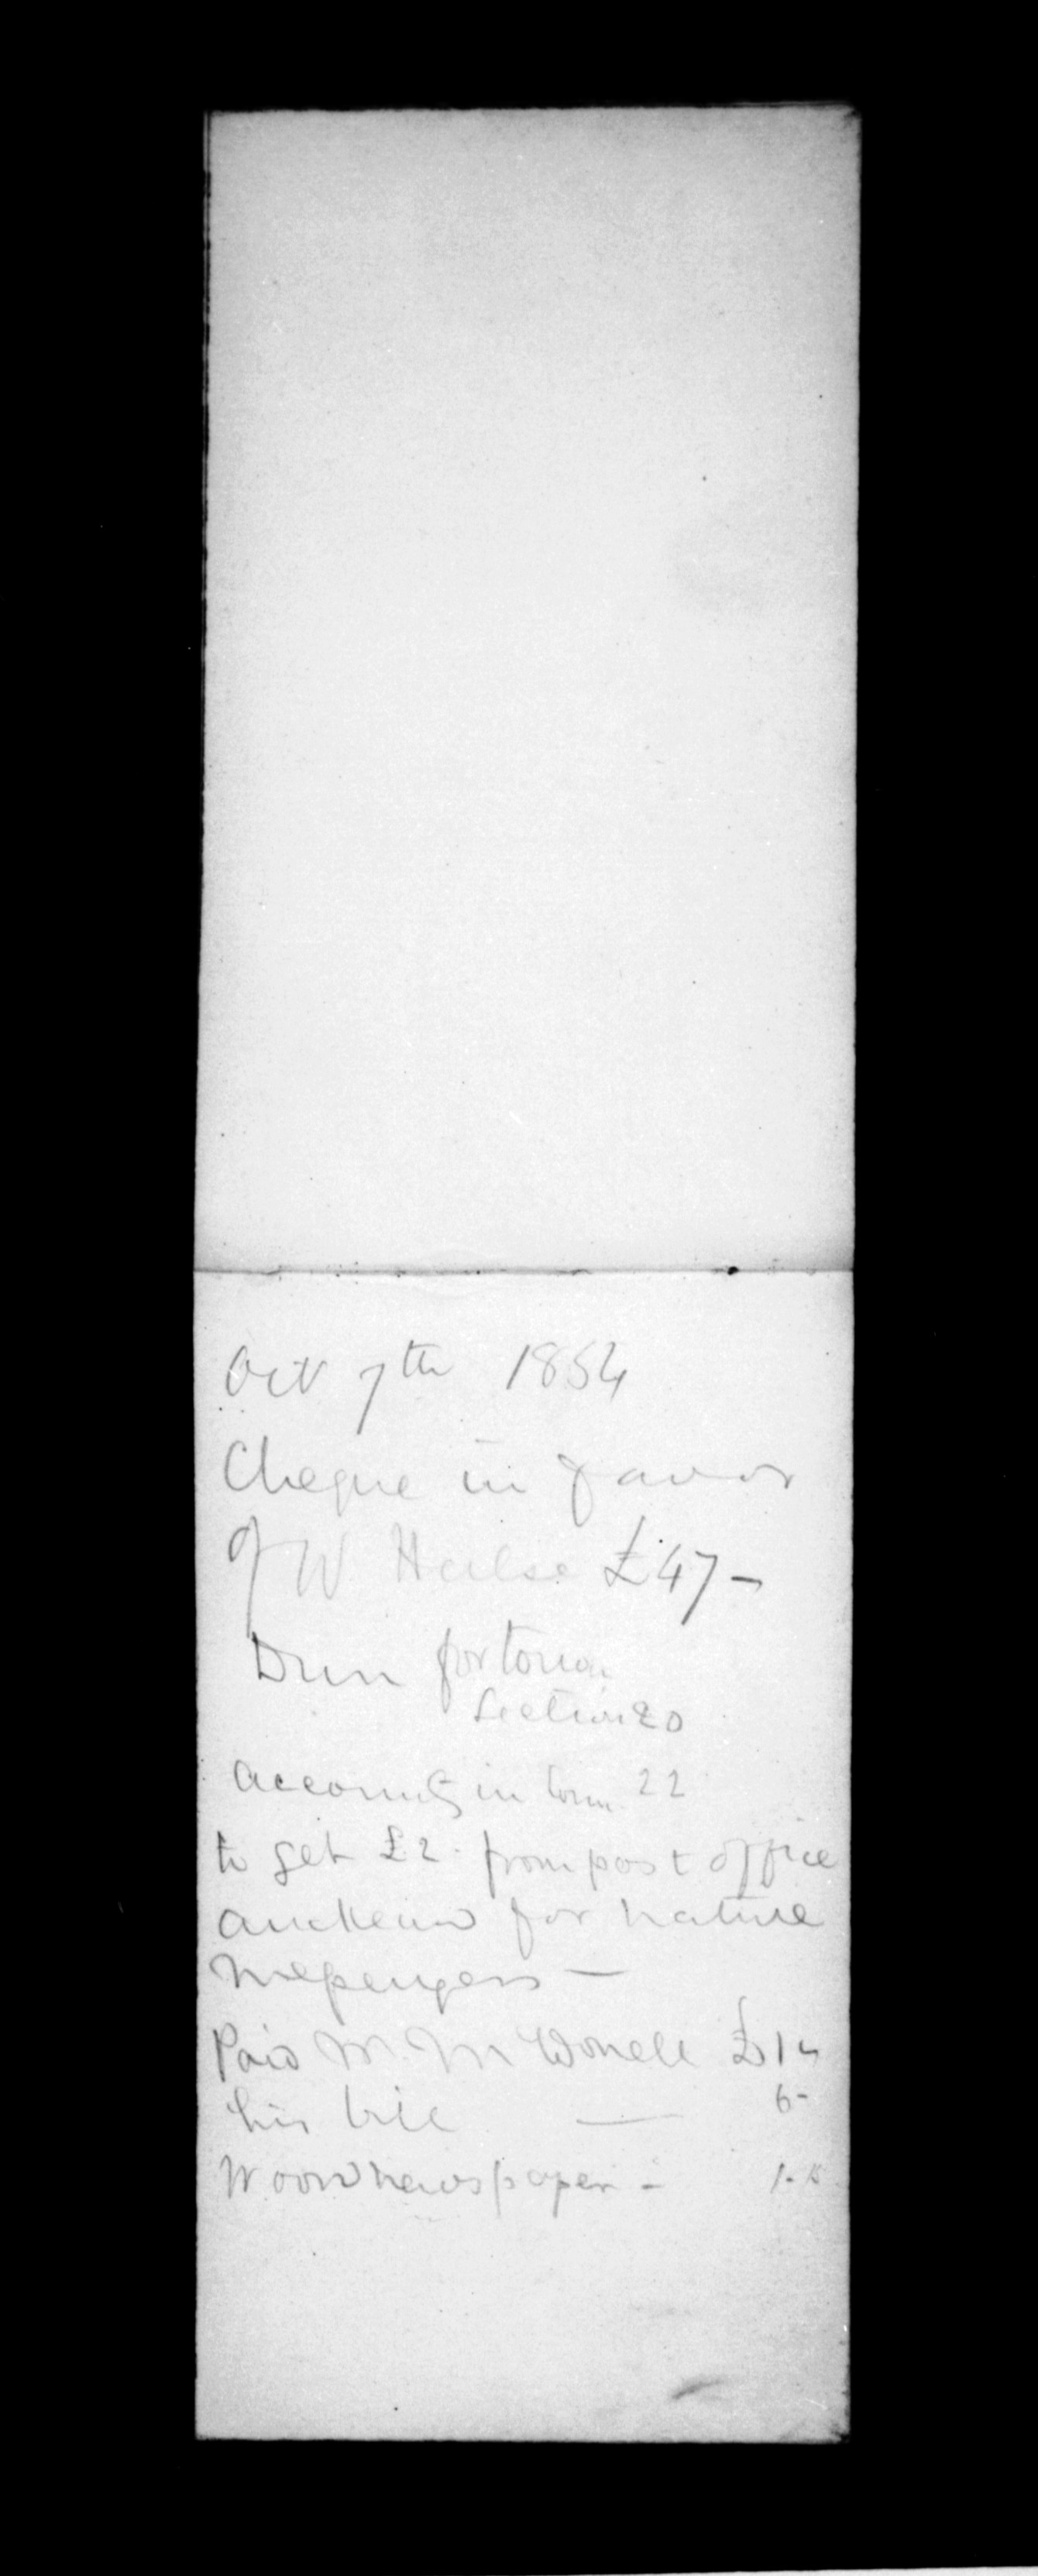 Oct 7th 1854
Cheque in favor
of W Hulse £47-
Dunn for town
Section 20
accounts in town 22
to get £2. from post office
Auckland for native
messengers —
Paid Mr. McDonell £1
his bill — 6-
Wood newspaper - 1-15